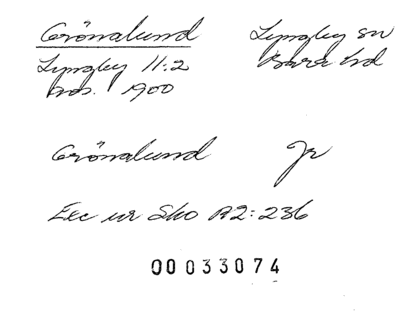 Grönalund Lyngby sn
Lyngby 11:2 Bara hd
Avs. 1900
Grönalund Jr
Exc ur Sko A2:236
00033074